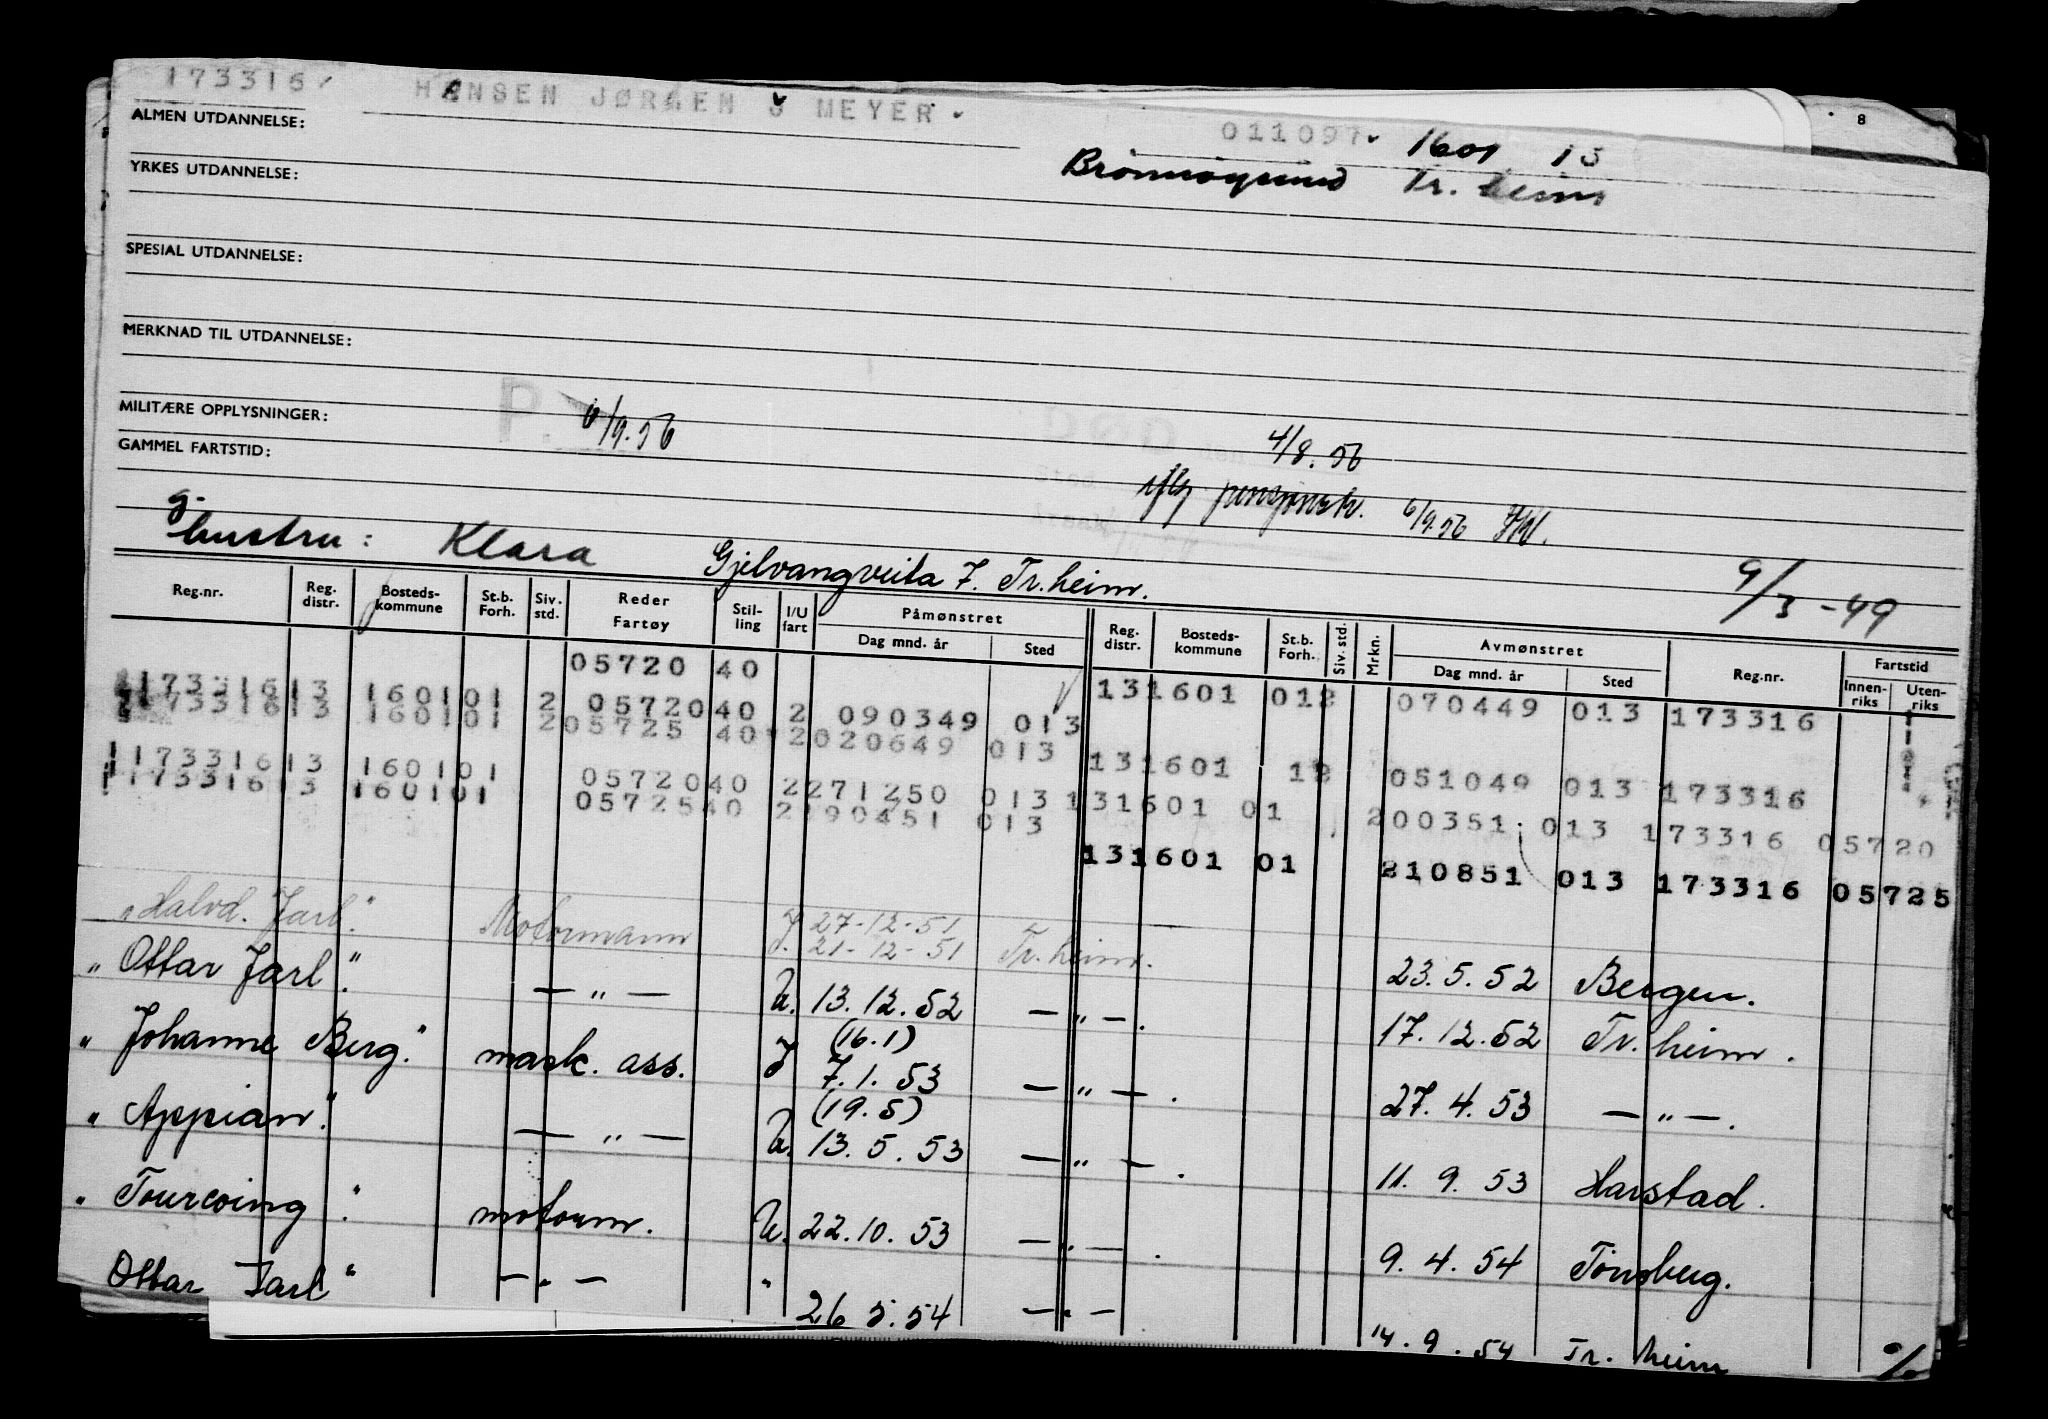 173316
HANSEN JØRGEN J MEYER
011097 1601 13
8
ALMEN UTDANNELSE:
Brønnøysund Tr. heim
YRKES UTDANNELSE:
SPESIAL UTDANNELSE:
MERKNAD TIL UTDANNELSE:
MILITÆRE OPPLYSNINGER:
P. 6/9.56
DØD den 4/8.56
GAMMEL FARTSTID:
Sted
iflg pensjonsk. 6/9.56
Årsak
g.
hustru: Klara Gjelvangveita 7. Tr.heim.
9/3-49
Reg.nr. Reg. distr. Bosteds-kommune St.b. Forh. Siv. std. Reder Fartøy Stil-ling I/U fart Påmønstret Dag mnd. år Sted Reg. distr. Bosteds-kommune St.b. Forh. Siv. std. Mrkn. Avmønstret Dag mnd. år Sted Reg.nr. Fartstid Innen-riks Uten-riks
05720 40
173316 13 160101 2 05720 40 2 090349 013 131601 012 070449 013 173316
173316 13 160101 2 05725 40 2 020649 013
131601 12 051049 013 173316
173316 13 160101 05720 40 2 271250 013 131601 01 200351 013 173316 05720
173316 13 160101 05725 40 2 190451 013
131601 01 210851 013 173316 05725
"Halvd. Jarl". Motormann J 27-12-51
J. 21-12-51 Tr.heim.
23.5.52 Bergen.
"Ottar Jarl". — " — U. 13.12.52 — " —.
17.12.52 Tr.heim.
(16.1)
"Johanne Berg". mask. ass. J 7.1.53 — " —.
27.4.53 — " —.
(19.5)
"Appian". — " — U. 13.5.53 — " —.
11.9.53 Harstad.
"Tourcoing". motorm. U. 22.10.53 — " —.
9.4.54 Tönsberg.
Ottar Jarl" — " — " 26 5.54 — " —
14.9.54 Tr. heim
%